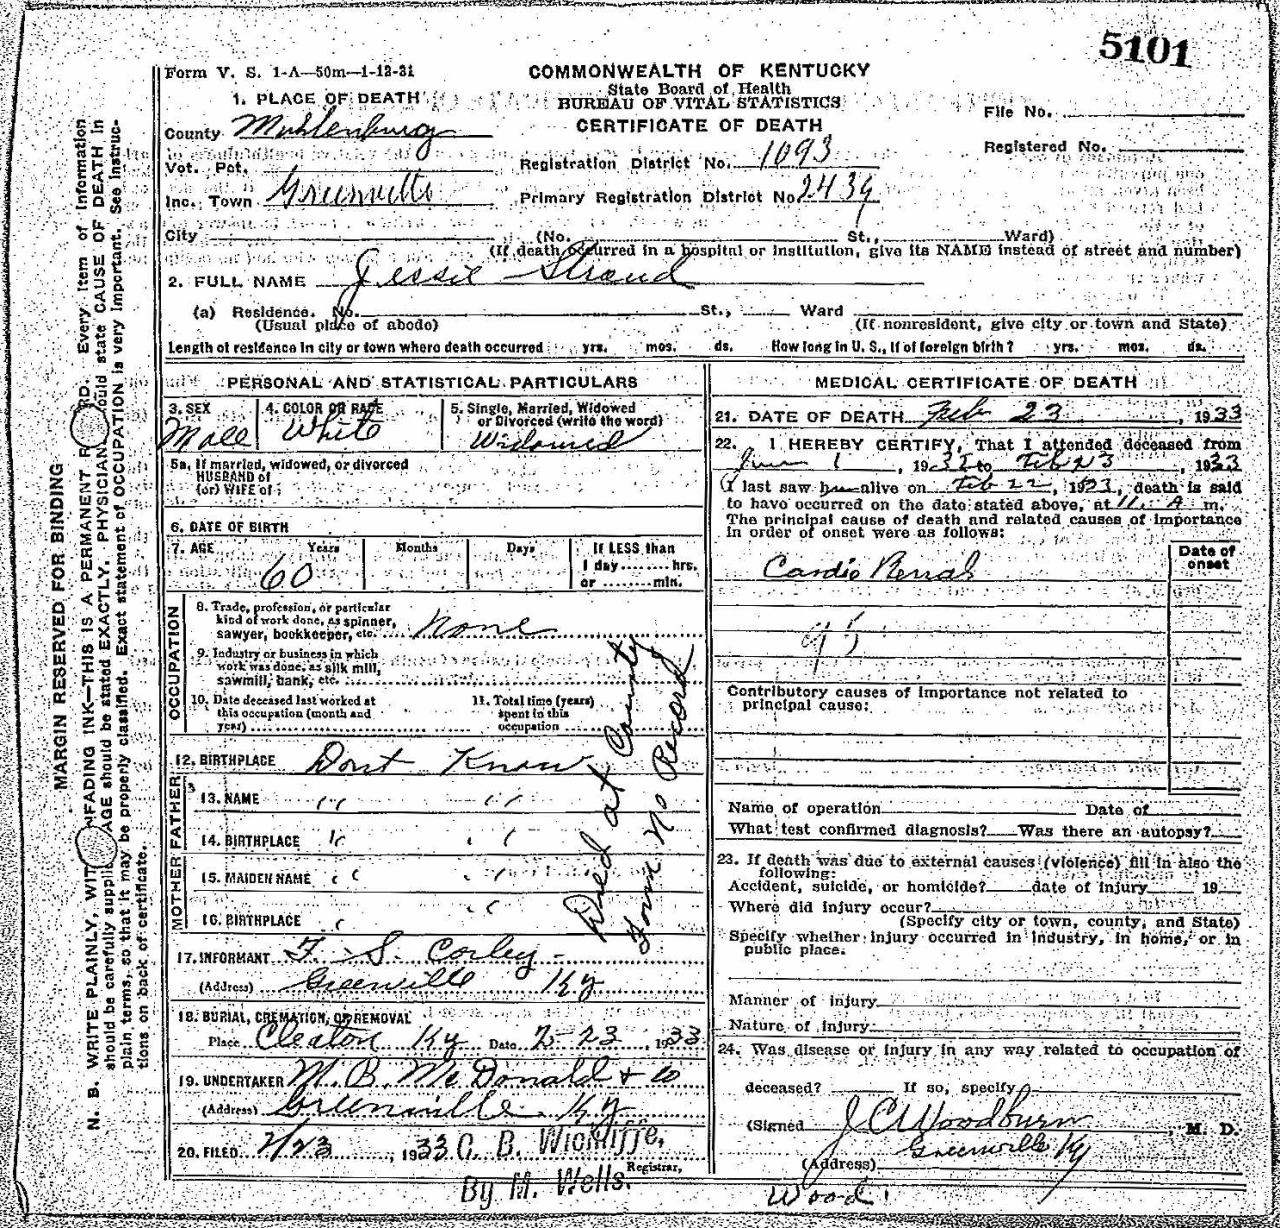 5101
Form V. S. 1-A—50m—1-12-31
COMMONWEALTH OF KENTUCKY
State Board of Health
BUREAU OF VITAL STATISTICS
CERTIFICATE OF DEATH
File No.
Registered No.
1. PLACE OF DEATH
County Muhlenburg
Vot. Pct.
Inc. Town Greenville
Registration District No. 1093
Primary Registration District No. 2439
City (No. St., Ward)
(If death occurred in a hospital or institution, give its NAME instead of street and number)
2. FULL NAME Jessie Stroud
(a) Residence. No. St., Ward
(Usual place of abode) (If nonresident, give city or town and State)
Length of residence in city or town where death occurred yrs. mos. ds. How long in U. S., if of foreign birth? yrs. mos. ds.
PERSONAL AND STATISTICAL PARTICULARS
3. SEX
Male
4. COLOR OR RACE
White
5. Single, Married, Widowed
or Divorced (write the word)
Widowed
5a. If married, widowed, or divorced
HUSBAND of
(or) WIFE of
6. DATE OF BIRTH
7. AGE Years Months Days If LESS than
60 1 day........hrs.
or ........min.
OCCUPATION
8. Trade, profession, or particular
kind of work done, as spinner,
sawyer, bookkeeper, etc. None
9. Industry or business in which
work was done, as silk mill,
sawmill, bank, etc.
10. Date deceased last worked at
this occupation (month and
year)
11. Total time (years)
spent in this
occupation
12. BIRTHPLACE Dont Know
FATHER
13. NAME " "
14. BIRTHPLACE " "
MOTHER
15. MAIDEN NAME " "
16. BIRTHPLACE " "
Died at County
Home No Record
17. INFORMANT T. S. Corley
(Address) Greenville Ky
18. BURIAL, CREMATION, OR REMOVAL
Place Cleaton Ky Date 2-23, 1933
19. UNDERTAKER M. B. McDonald & Co
(Address) Greenville Ky
20. FILED 2/23, 1933 C. B. Wickliffe,
Registrar,
By M. Wells.
MEDICAL CERTIFICATE OF DEATH
21. DATE OF DEATH Feb 23, 1933
22. I HEREBY CERTIFY, That I attended deceased from
1, 19 to Feb 23, 1933
I last saw alive on Feb 22, 1933, death is said
to have occurred on the date stated above, at 11 A m.
The principal cause of death and related causes of importance
in order of onset were as follows:
Date of
onset
Cardio Renal
95
Contributory causes of importance not related to
principal cause:
Name of operation Date of
What test confirmed diagnosis? Was there an autopsy?
23. If death was due to external causes (violence) fill in also the
following:
Accident, suicide, or homicide? date of injury 19
Where did injury occur?
(Specify city or town, county, and State)
Specify whether injury occurred in industry, in home, or in
public place.
Manner of injury
Nature of injury
24. Was disease or injury in any way related to occupation of
deceased? If so, specify
(Signed J C Woodburn, M. D.
(Address) Greenville Ky
Wood.
MARGIN RESERVED FOR BINDING
N. B. WRITE PLAINLY, WITH UNFADING INK—THIS IS A PERMANENT RECORD. Every item of information
should be carefully supplied. AGE should be stated EXACTLY. PHYSICIANS should state CAUSE OF DEATH in
plain terms, so that it may be properly classified. Exact statement of OCCUPATION is very important. See instruc-
tions on back of certificate.